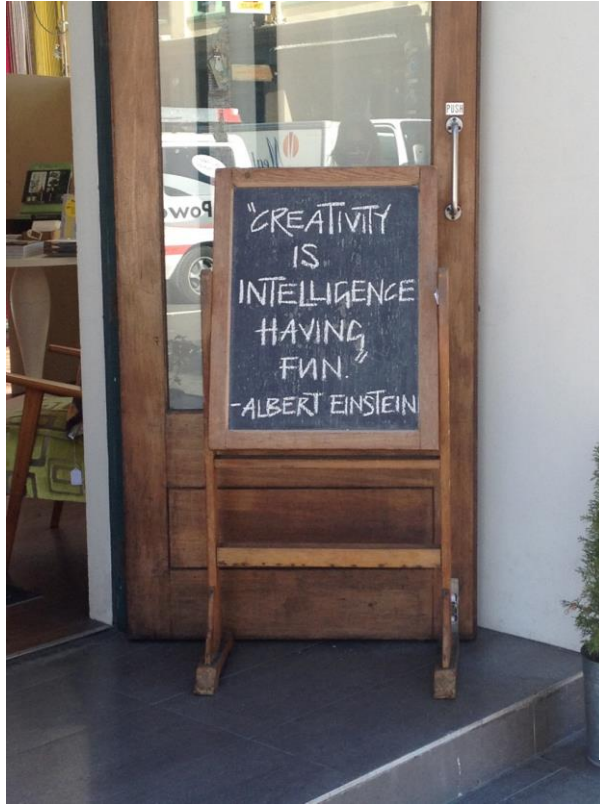 PUSH
"CREATIVITY
IS
INTELLIGENCE
HAVING
FUN."
-ALBERT EINSTEIN